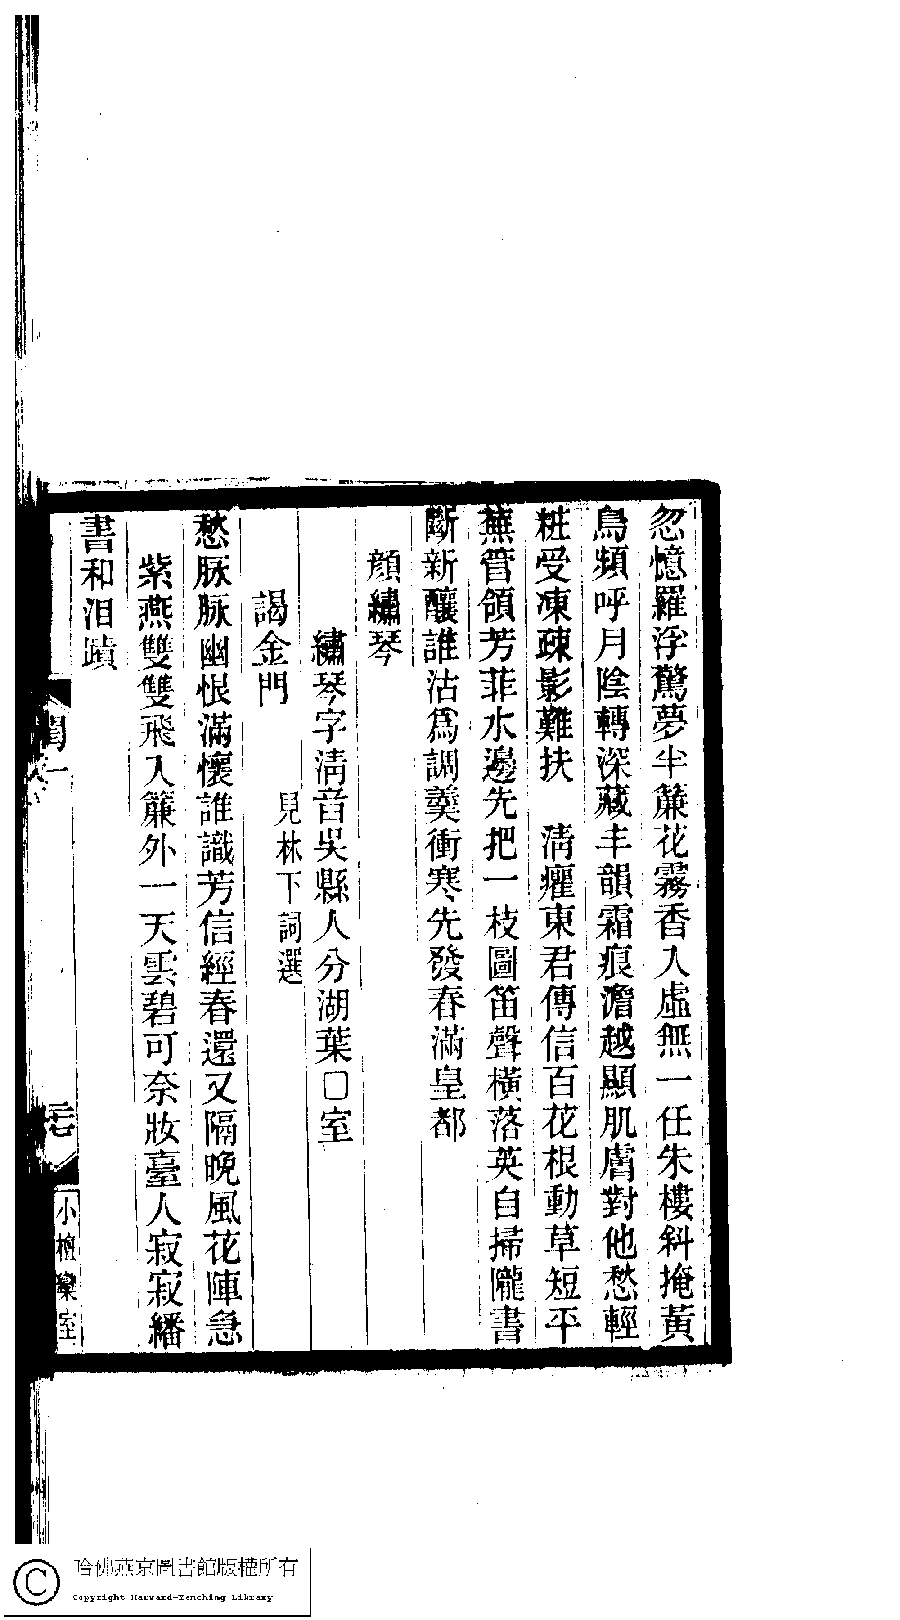 忽憶羅浮驚夢半簾花霧香入虛無一任朱樓斜掩黃
鳥頻呼月陰轉深藏丰韻霜痕澹越顯肌膚對他愁輕
粧受凍疎影難扶　清癯東君傳信百花根動草短平
蕪管領芳菲水邊先把一枝圖笛聲橫落英自掃隴書
斷新釀誰沽爲調羹衝寒先發春滿皇都
顔繡琴
繡琴字清音吳縣人分湖葉□室
謁金門
見林下詞選
愁脉脉幽恨滿懷誰識芳信經春還又隔晚風花陣急
紫燕雙雙飛入簾外一天雲碧可奈妝臺人寂寂繙
書和泪蹟
閨一
小檀欒室
哈佛燕京圖書館版權所有
Copyright Harvard-Yenching Library